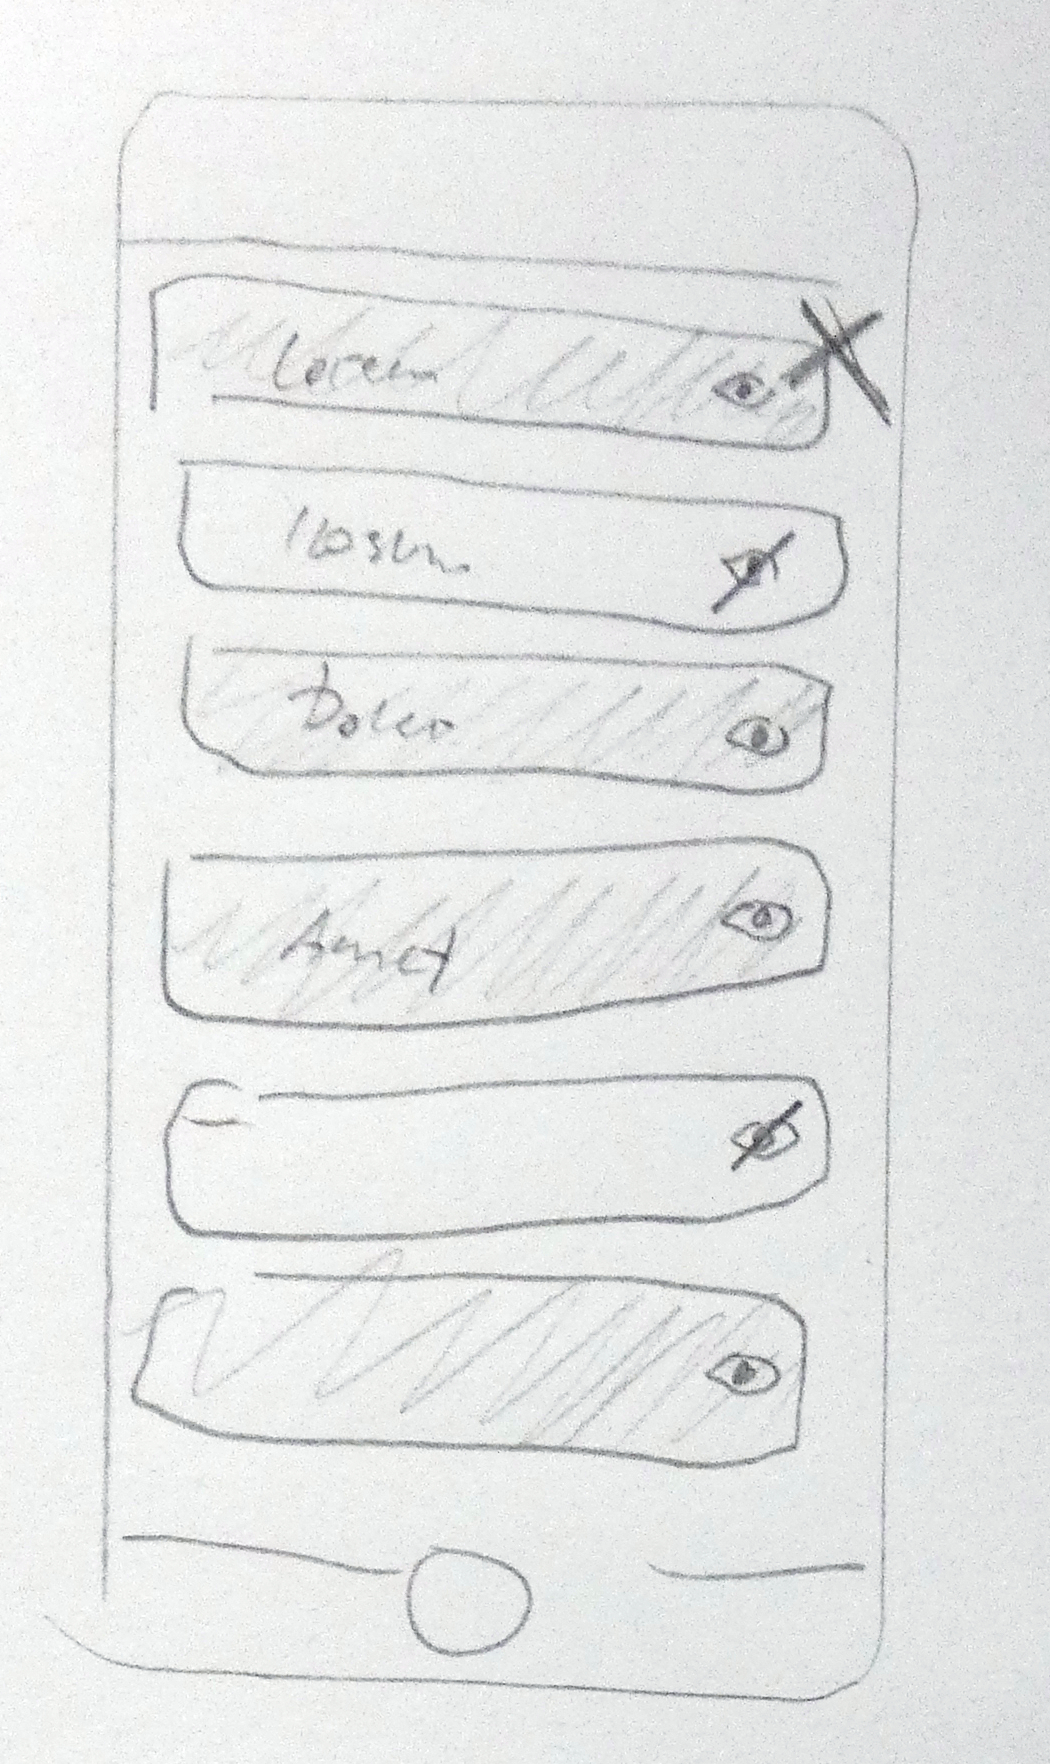 Lorem
Ipsum
Dolor
Amet